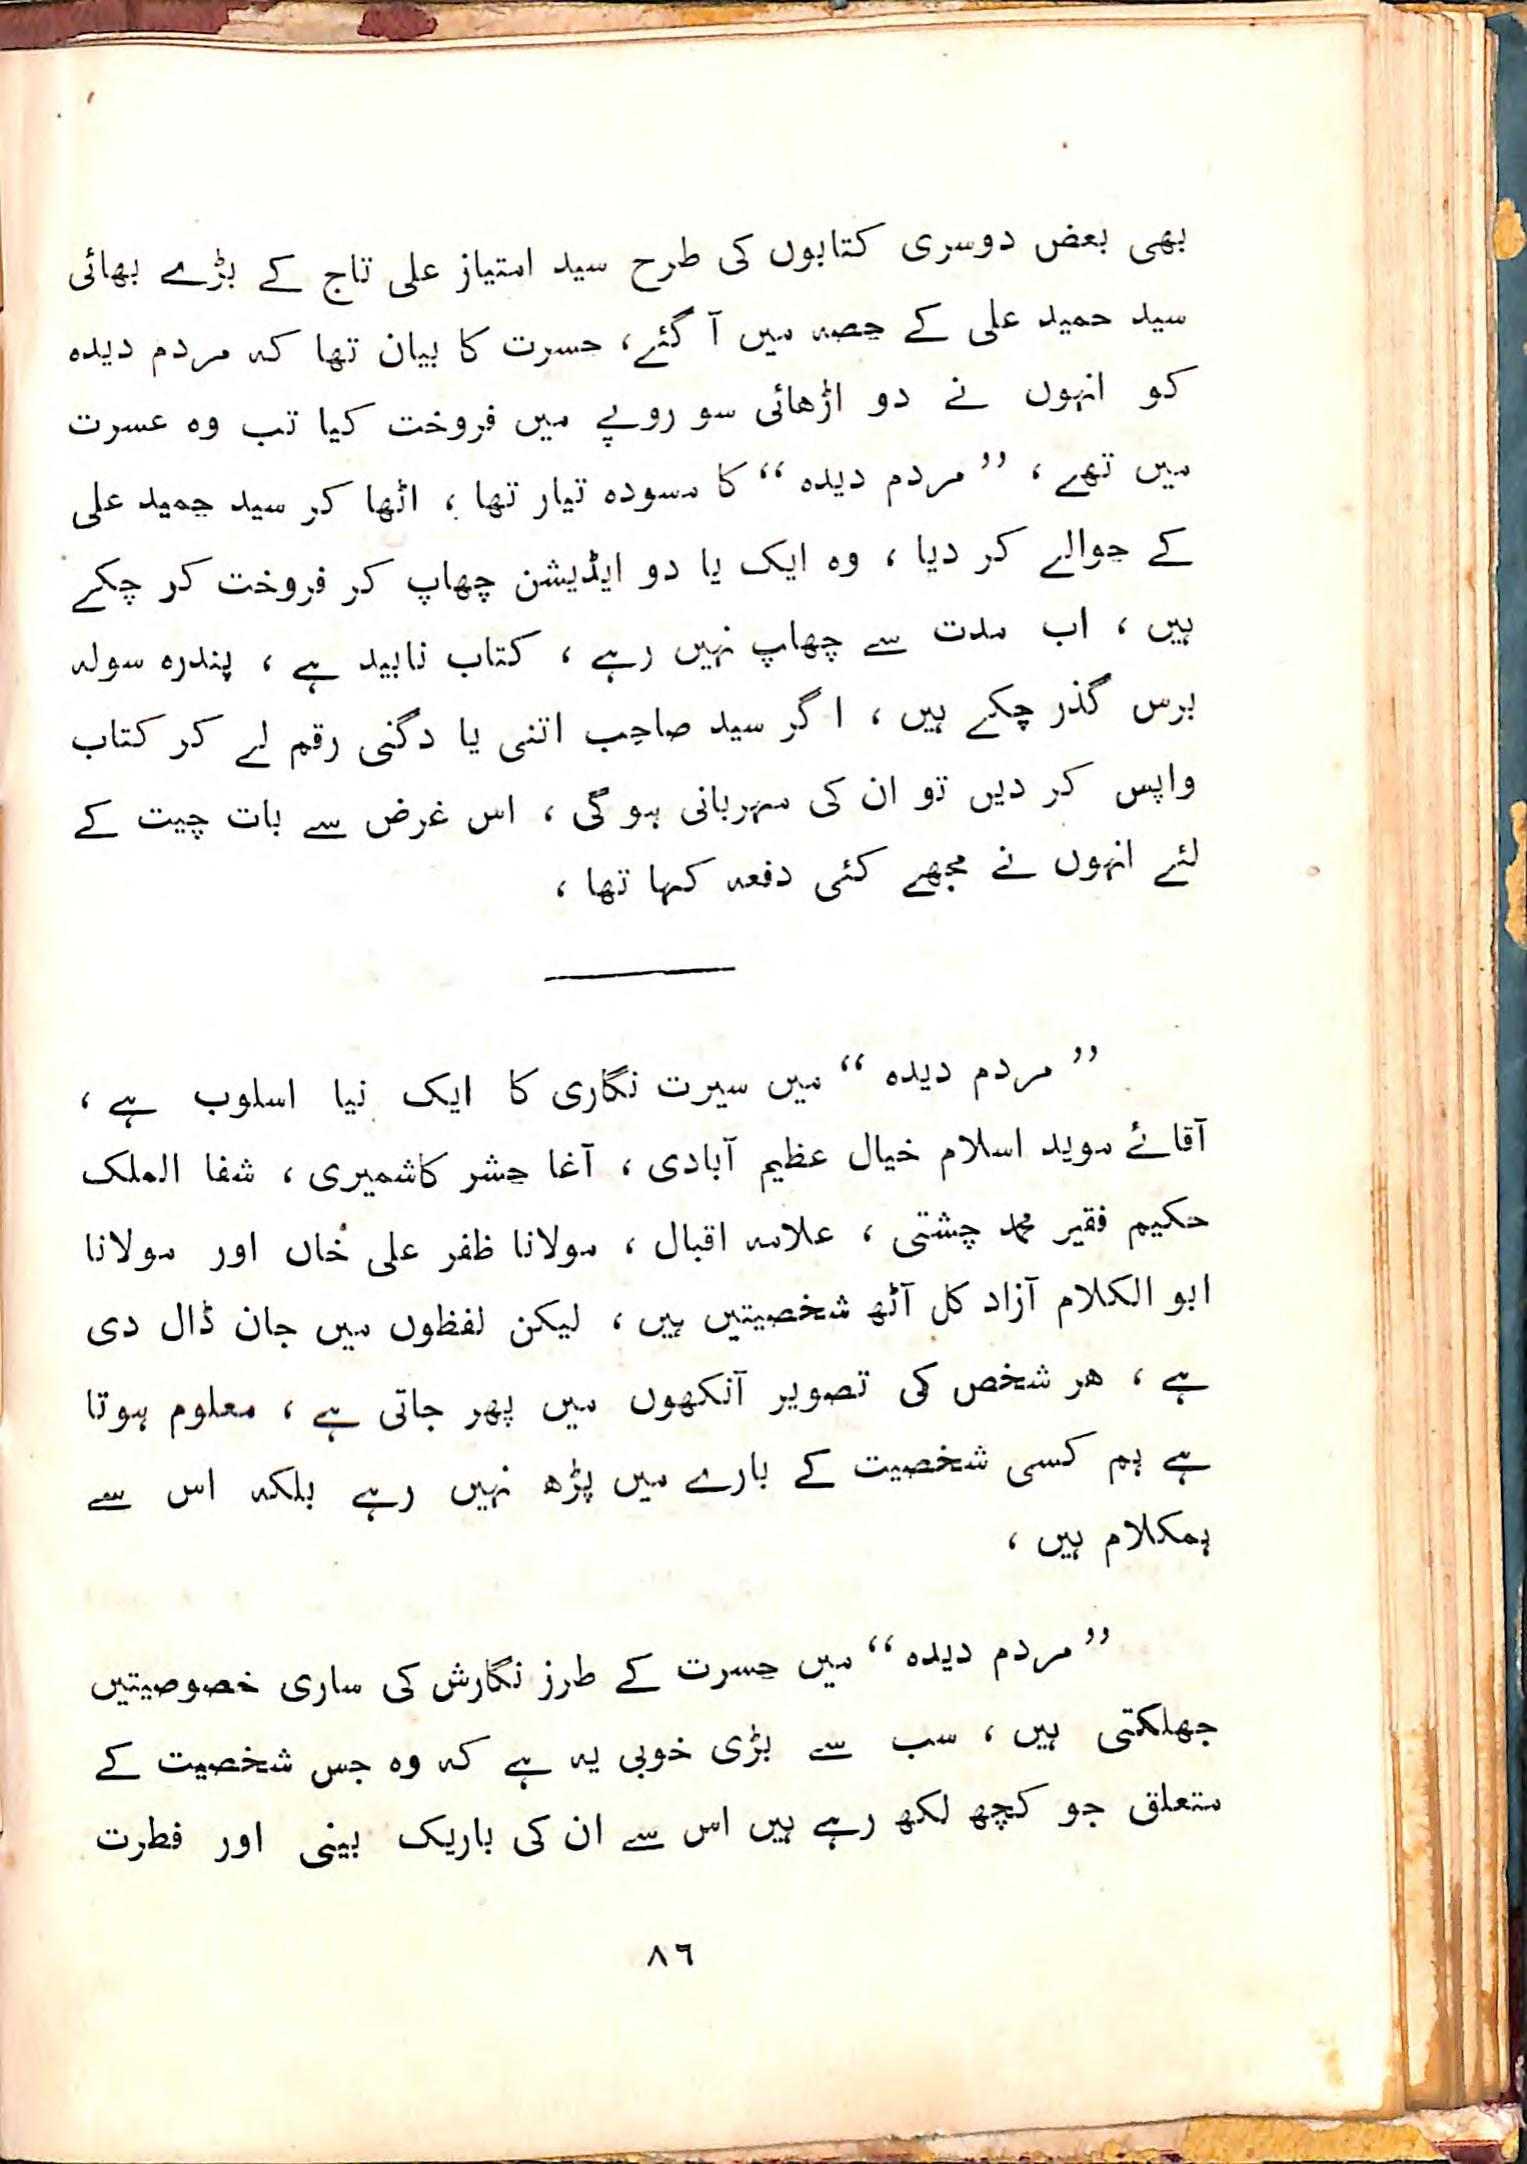 بھی بعض دوسری کتابوں کی طرح سید امتیاز علی تاج کے بڑے بھائی
سید حمید علی کے حصہ میں آ گئے، حسرت کا بیان تھا کہ مردم دیدہ
کو انہوں نے دو اڑھائی سو روپے میں فروخت کیا تب وہ عسرت
میں تھے ، ”مردم دیدہ“ کا مسودہ تیار تھا ، اٹھا کر سید حمید علی
کے حوالے کر دیا ، وہ ایک یا دو ایڈیشن چھاپ کر فروخت کر چکے
ہیں ، اب مدت سے چھاپ نہیں رہے ، کتاب نابید ہے ، پندرہ سولہ
برس گذر چکے ہیں ، اگر سید صاحب اتنی یا دگنی رقم لے کر کتاب
واپس کر دیں تو ان کی مہربانی ہو گی ، اس غرض سے بات چیت کے
لئے انہوں نے مجھے کئی دفعہ کہا تھا ،
”مردم دیدہ“ میں سیرت نگاری کا ایک نیا اسلوب ہے ،
آقائے موید اسلام خیال عظیم آبادی ، آغا حشر کاشمیری ، شفا الملک
حکیم فقیر محمد چشتی ، علامہ اقبال ، مولانا ظفر علی خاں اور مولانا
ابو الکلام آزاد کل آٹھ شخصیتیں ہیں ، لیکن لفظوں میں جان ڈال دی
ہے ، ھر شخص کی تصویر آنکھوں میں پھر جاتی ہے ، معلوم ہوتا
ہے ہم کسی شخصیت کے بارے میں پڑھ نہیں رہے بلکہ اس سے
ہمکلام ہیں ،
”مردم دیدہ“ میں حسرت کے طرز نگارش کی ساری خصوصیتیں
جھلکتی ہیں ، سب سے بڑی خوبی یہ ہے کہ وہ جس شخصیت کے
متعلق جو کچھ لکھ رہے ہیں اس سے ان کی باریک بینی اور فطرت
٨٦